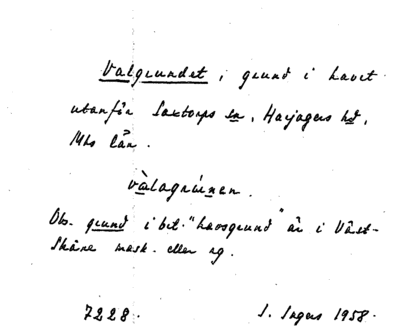 Valgrundet, grund i havet
utanför Saxtorps sn, Harjagers hd,
Mhs län.
vàlagrúnen.
Obs. grund i bet. "havsgrund" är i Väst-
Skåne mask. eller ng.
7228. S. Ingers 1958.